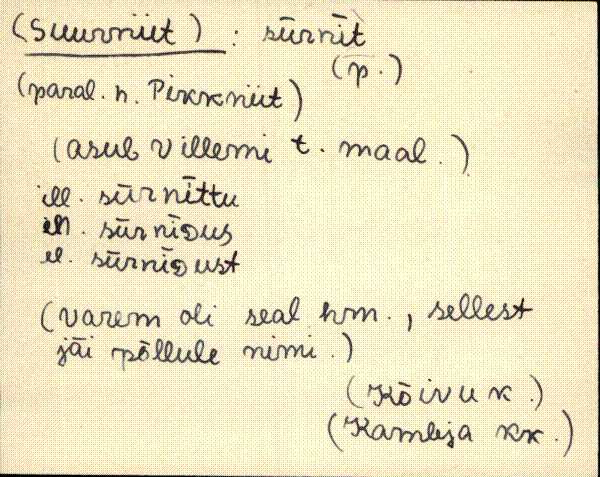 (Suurniit) : sūrnīt
(p.)
(paral. n. Pikkniit)
(asub Villemi t. maal.)
ill. sūrnīttu
in. sūrnīᴅus
el. sūrnīᴅust
(varem oli seal hm., sellest
jäi põllule nimi.)
(Kõivu k.)
(Kambja kk.)